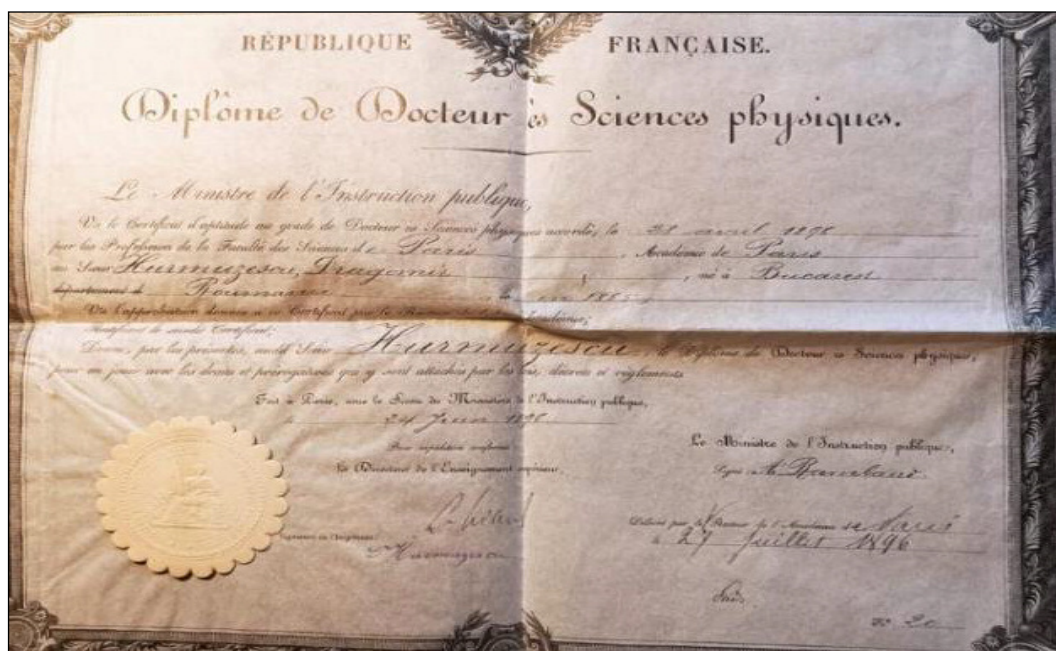 RÉPUBLIQUE FRANÇAISE.
Diplôme de Docteur ès Sciences physiques.
Le Ministre de l'Instruction publique,
Vu le Certificat d'aptitude au grade de Docteur ès Sciences physiques accordé, le avril
par les Professeurs de la Faculté des Sciences de Paris, Académie de Paris
au Sieur Hurmuzescu, Dragomir, né à Bucarest
département d Roumanie, le
Vu l'approbation donnée à ce Certificat par le Recteur de
Certificat;
Donne, par les présentes, audit Sieur Hurmuzescu, le Diplôme de Docteur ès Sciences physiques,
pour en jouir avec les droits et prérogatives qui y sont attachés par les lois, décrets et règlements.
Fait à Paris, sous le Sceau du Ministère de l'Instruction publique,
le 24 Juin
Pour expédition conforme
Le Ministre de l'Instruction publique,
Le Directeur de l'Enseignement supérieur,
Signé A. Rambaud
Délivré par le Recteur de l'Académie de Paris
le 27 Juillet 1896
Signature de l'Impétrant
Hurmuzescu
N° 20